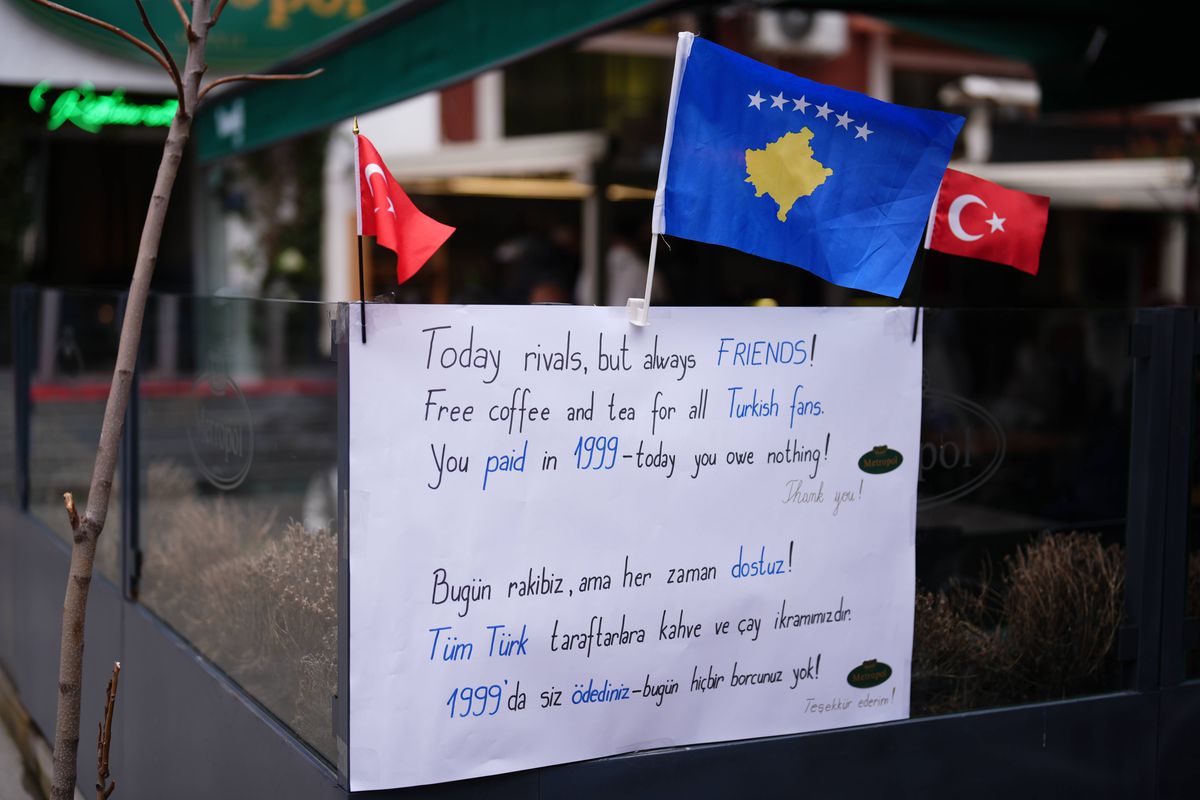 Today rivals, but always FRIENDS!
Free coffee and tea for all Turkish fans.
You paid in 1999-today you owe nothing!
Metropol
Thank you!
Bugün rakibiz, ama her zaman dostuz!
Tüm Türk taraftarlara kahve ve çay ikramımızdır.
1999'da siz ödediniz-bugün hiçbir borcunuz yok!
Metropol
Teşekkür ederim!